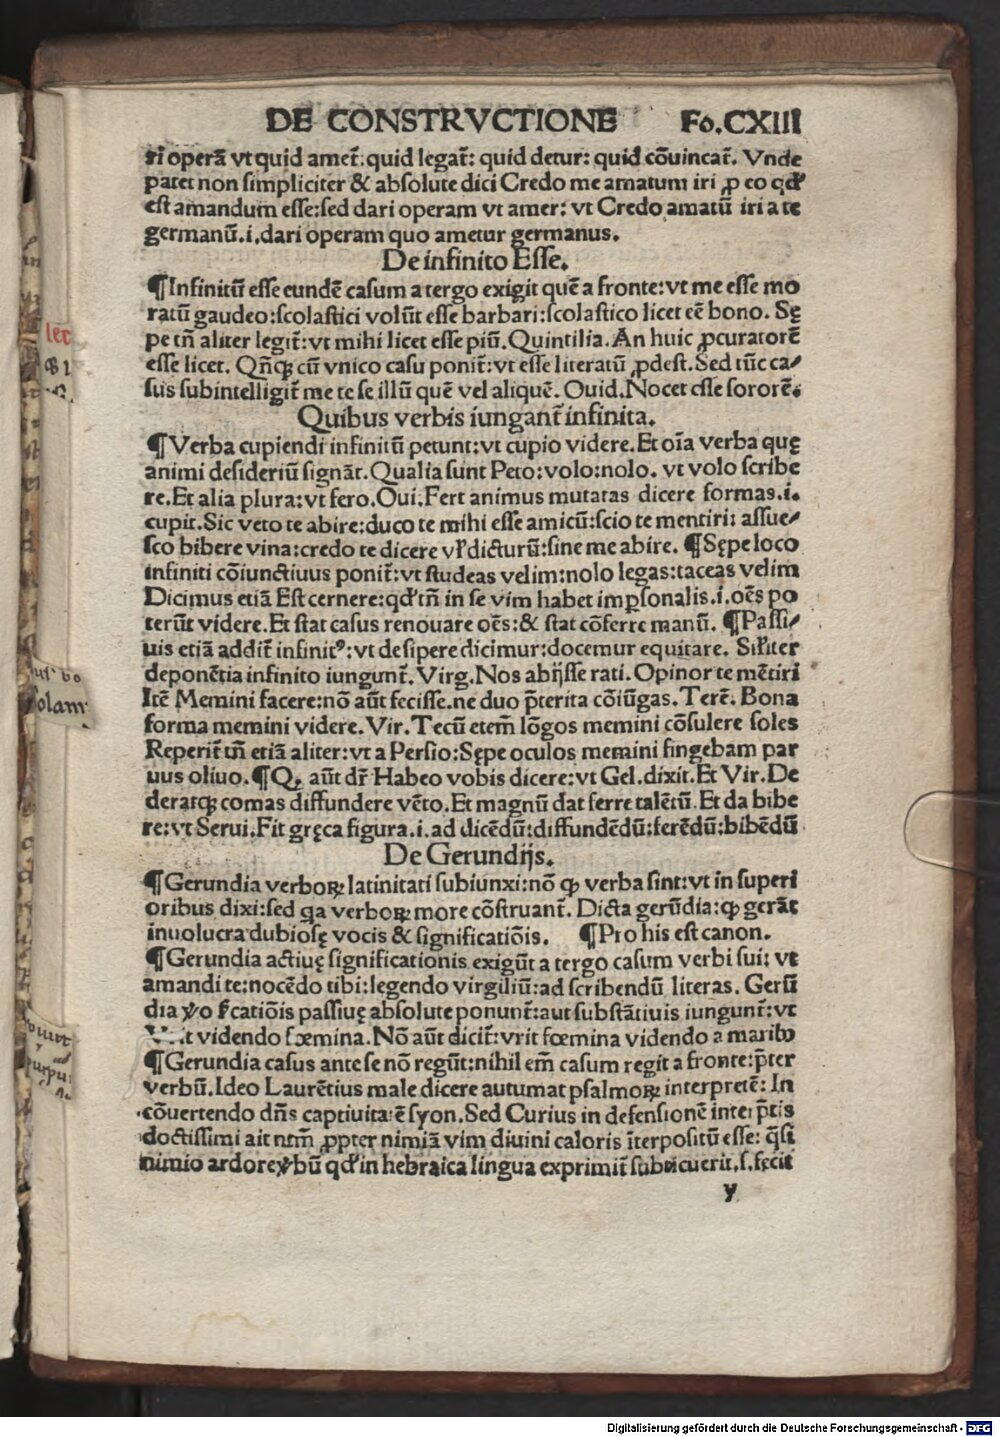 DE CONSTRVCTIONE Fo.CXIII
ri operā vt quid amet̄: quid legat̄: quid detur: quid cōuincat̄. Vnde
patet non simpliciter & absolute dici Credo me amatum iri ꝓ eo qd̛
est amandum esse: sed dari operam vt amer: vt Credo amatū iri a te
germanū .i. dari operam quo ametur germanus.
De infinito Esse.
¶Infinitū esse eundē casum a tergo exigit quē a fronte: vt me esse mo
ratū gaudeo: scolastici volūt esse barbari: scolastico licet eē bono. Sę
pe tn̄ aliter legit̄: vt mihi licet esse piū. Quintilia. An huic ꝓcuratorē
esse licet. Qn̄qꝫ cū vnico casu ponit̄: vt esse literatū ꝓdest. Sed tūc ca⸗
sus subintelligit̄ me te se illū quē vel aliquē. Ouid. Nocet esse sororē.
Quibus verbis iungant̄ infinita.
¶Verba cupiendi infinitū petunt: vt cupio videre. Et oīa verba quę
animi desideriū signāt. Qualia sunt Peto: volo: nolo. vt volo scribe
re. Et alia plura: vt fero. Oui. Fert animus mutatas dicere formas .i.
cupit. Sic veto te abire: duco te mihi esse amicū: scio te mentiri: assue⸗
sco bibere vina: credo te dicere vł dicturū: sine me abire. ¶Sępe loco
infiniti cōiunctiuus ponit̄: vt studeas velim: nolo legas: taceas velim
Dicimus etiā Est cernere: qd̛ tn̄ in se vim habet imꝑsonalis .i. oēs po
terūt videre. Et stat casus renouare oēs: & stat cōferre manū. ¶Passi⸗
uis etiā addit̄ infinitꝰ: vt desipere dicimur: docemur equitare. Sił̛iter
deponētia infinito iungunt̄. Virg. Nos abijsse rati. Opinor te mētiri
Itē Memini facere: nō aūt fecisse. ne duo p̄terita cōiūgas. Terē. Bona
forma memini videre. Vir. Tecū etem̄ lōgos memini cōsulere soles
Reperit̄ tn̄ etiā aliter: vt a Persio: Sępe oculos memini fingebam par
uus oliuo. ¶Qꝫ aūt dr̄ Habeo vobis dicere: vt Gel. dixit. Et Vir. De
deratqꝫ comas diffundere vēto. Et magnū dat ferre talētū. Et da bibe
re: vt Serui. Fit gręca figura .i. ad dicēdū: diffundēdū: ferēdū: bibēdū
De Gerundijs.
¶Gerundia verboꝝ latinitati subiunxi: nō ꝙ verba sint: vt in superi
oribus dixi: sed qa verboꝝ more cōstruant̄. Dicta gerūdia: ꝙ gerāt
inuolucra dubiosę vocis & significatiōis. ¶Pro his est canon.
¶Gerundia actiuę significationis exigūt a tergo casum verbi sui: vt
amandi te: nocēdo tibi: legendo virgiliū: ad scribendū literas. Gerū
dia ꝟo s̛catiōis passiuę absolute ponunt̄: aut substātiuis iungunt̄: vt
Vrit videndo fœmina. Nō aūt dicit̄: vrit fœmina videndo a marito
¶Gerundia casus ante se nō regūt: nihil em̄ casum regit a fronte: p̄ter
verbū. Ideo Laurētius male dicere autumat psalmoꝝ interpretē: In
cōuertendo dn̄s captiuitatē syon. Sed Curius in defensionē interp̄tis
doctissimi ait ntm̄ ꝓpter nimiā vim diuini caloris iterpositū esse: q̄si
nimio ardore ꝟbū qd̛ in hebraica lingua exprimit̄ subticuerit .s. fęcit
y
lec
Solam
Digitalisierung gefördert durch die Deutsche Forschungsgemeinschaft - DFG